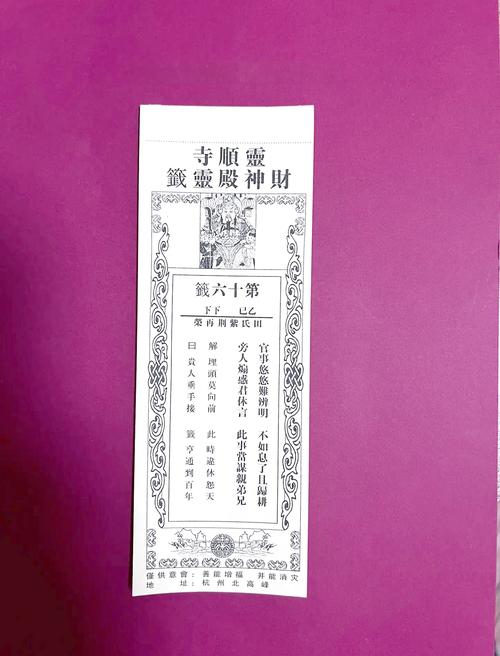 靈順寺
財神殿靈籤
第十六籤
乙巳 下下
田氏紫荊再榮
官事悠悠難辨明 不如息了且歸耕
旁人煽惑君休言 此事當謀親弟兄
解 埋頭莫向前 此時違休怨天
曰 貴人垂手接 籤亨通到百年
僅供意會：善能增福 并能消灾
地址：杭州北高峰